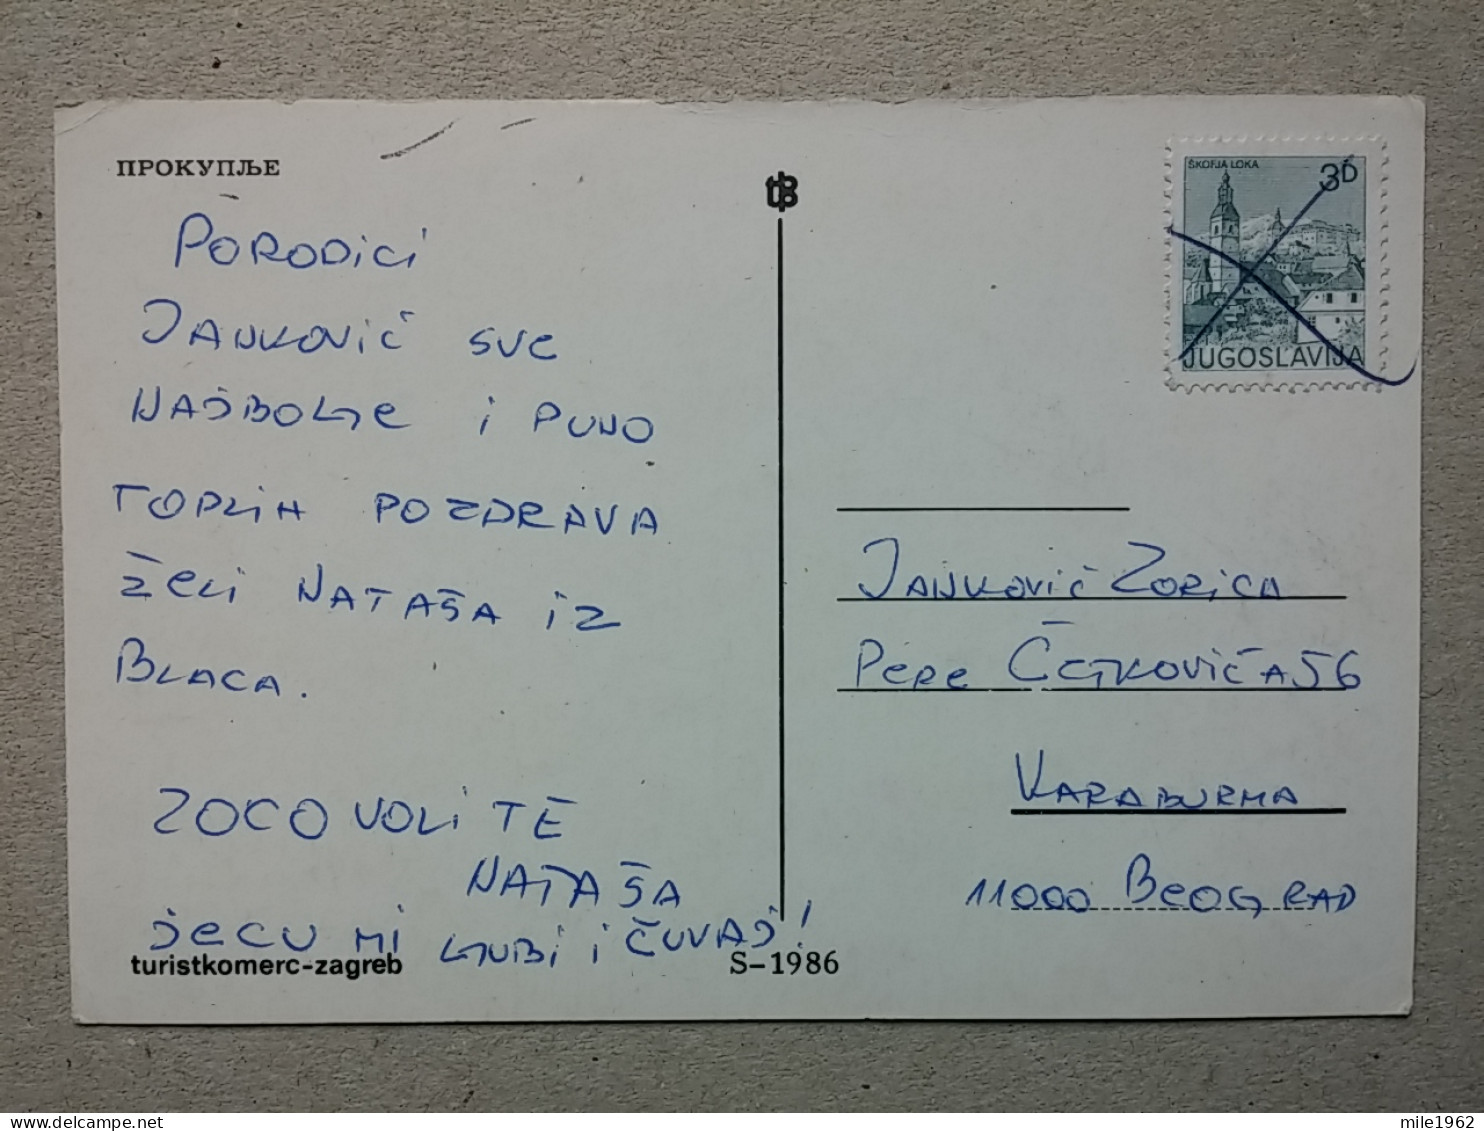 ПРОКУПЉЕ
PORODICI
JANKOVIĆ SVE
NAJBOLJE I PUNO
TOPLIH POZDRAVA
ŽELI NATAŠA IZ
BLACA.
ZOCO VOLI TE
NATAŠA
JECU MI LJUBI I ČUVAJ!
turistkomerc-zagreb
S-1986
ŠKOFJA LOKA
3D
JUGOSLAVIJA
JANKOVIĆ ZORICA
PERE ĆETKOVIĆA 56
KARABURMA
11000 BEOGRAD
mile1962